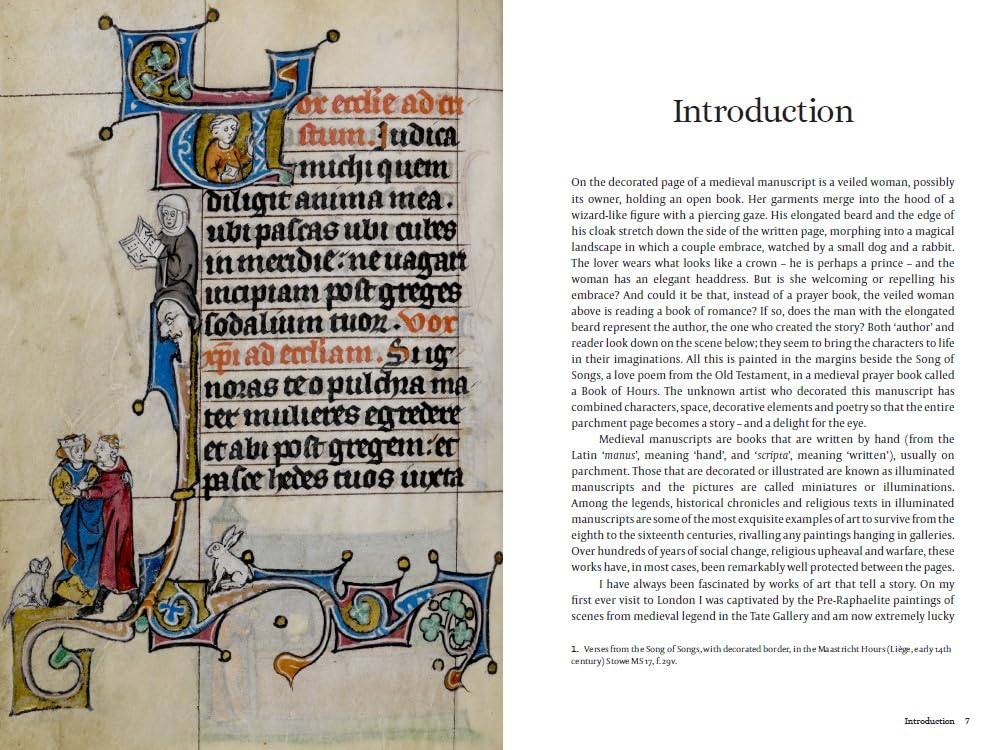 ox ecclie ad cri
stum. Iudica
michi quem
diligit anima mea.
ubi pascas ubi cubes
in meridie: ne uagari
incipiam post greges
sodalium tuor. Vox
xpi ad eccliam. Si ig
noras te o pulchra
ter mulieres egredere
et abi post gregem: et
pasce hedos tuos iuxta
Introduction
On the decorated page of a medieval manuscript is a veiled woman, possibly
its owner, holding an open book. Her garments merge into the hood of a
wizard-like figure with a piercing gaze. His elongated beard and the edge of
his cloak stretch down the side of the written page, morphing into a magical
landscape in which a couple embrace, watched by a small dog and a rabbit.
The lover wears what looks like a crown – he is perhaps a prince – and the
woman has an elegant headdress. But is she welcoming or repelling his
embrace? And could it be that, instead of a prayer book, the veiled woman
above is reading a book of romance? If so, does the man with the elongated
beard represent the author, the one who created the story? Both ‘author’ and
reader look down on the scene below; they seem to bring the characters to life
in their imaginations. All this is painted in the margins beside the Song of
Songs, a love poem from the Old Testament, in a medieval prayer book called
a Book of Hours. The unknown artist who decorated this manuscript has
combined characters, space, decorative elements and poetry so that the entire
parchment page becomes a story – and a delight for the eye.
Medieval manuscripts are books that are written by hand (from the
Latin ‘manus’, meaning ‘hand’, and ‘scripta’, meaning ‘written’), usually on
parchment. Those that are decorated or illustrated are known as illuminated
manuscripts and the pictures are called miniatures or illuminations.
Among the legends, historical chronicles and religious texts in illuminated
manuscripts are some of the most exquisite examples of art to survive from the
eighth to the sixteenth centuries, rivalling any paintings hanging in galleries.
Over hundreds of years of social change, religious upheaval and warfare, these
works have, in most cases, been remarkably well protected between the pages.
I have always been fascinated by works of art that tell a story. On my
first ever visit to London I was captivated by the Pre-Raphaelite paintings of
scenes from medieval legend in the Tate Gallery and am now extremely lucky
1. Verses from the Song of Songs, with decorated border, in the Maastricht Hours (Liège, early 14th
century) Stowe MS 17, f.29v.
Introduction 7